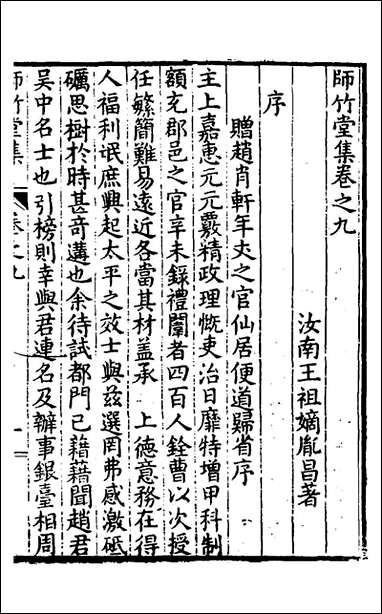 師竹堂集卷之九
汝南王祖嫡胤昌著
序
贈趙肖軒年丈之官仙居便道歸省序
主上嘉惠元元覈精政理慨吏治日靡特增甲科制
額充郡邑之官辛未錄禮闈者四百人銓曹以次授
任繁簡難易遠近各當其材蓋承　上德意務在得
人福利氓庶興起太平之效士與兹選罔弗感激砥
礪思樹於時甚奇遘也余待試都門已藉藉聞趙君
吳中名士也引榜則幸與君連名及辦事銀臺相周
師竹堂集
卷之九
一